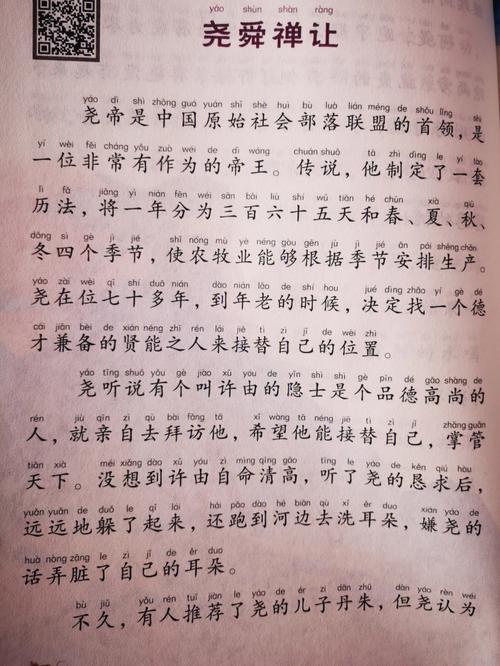 yáo shùn shàn ràng
尧舜禅让
yáo dì shì zhōng guó yuán shǐ shè huì bù luò lián méng de shǒu lǐng shì
尧帝是中国原始社会部落联盟的首领，是
yí wèi fēi cháng yǒu zuò wéi de dì wáng chuán shuō tā zhì dìng le yí tào
一位非常有作为的帝王。传说，他制定了一套
lì fǎ jiāng yì nián fēn wéi sān bǎi liù shí wǔ tiān hé chūn xià qiū
历法，将一年分为三百六十五天和春、夏、秋、
dōng sì gè jì jié shǐ nóng mù yè néng gòu gēn jù jì jié ān pái shēng chǎn
冬四个季节，使农牧业能够根据季节安排生产。
yáo zài wèi qī shí duō nián dào nián lǎo de shí hòu jué dìng zhǎo yí gè dé
尧在位七十多年，到年老的时候，决定找一个德
cái jiān bèi de xián néng zhī rén lái jiē tì zì jǐ de wèi zhì
才兼备的贤能之人来接替自己的位置。
yáo tīng shuō yǒu gè jiào xǔ yóu de yǐn shì shì gè pǐn dé gāo shàng de
尧听说有个叫许由的隐士是个品德高尚的
rén jiù qīn zì qù bài fǎng tā xī wàng tā néng jiē tì zì jǐ zhǎng guǎn
人，就亲自去拜访他，希望他能接替自己，掌管
tiān xià méi xiǎng dào xǔ yóu zì mìng qīng gāo tīng le yáo de kěn qiú hòu
天下。没想到许由自命清高，听了尧的恳求后，
yuǎn yuǎn de duǒ le qǐ lái hái pǎo dào hé biān qù xǐ ěr duo xián yáo de
远远地躲了起来，还跑到河边去洗耳朵，嫌尧的
huà nòng zāng le zì jǐ de ěr duo
话弄脏了自己的耳朵。
bù jiǔ yǒu rén tuī jiàn le yáo de ér zi dān zhū dàn yáo rèn wéi
不久，有人推荐了尧的儿子丹朱，但尧认为